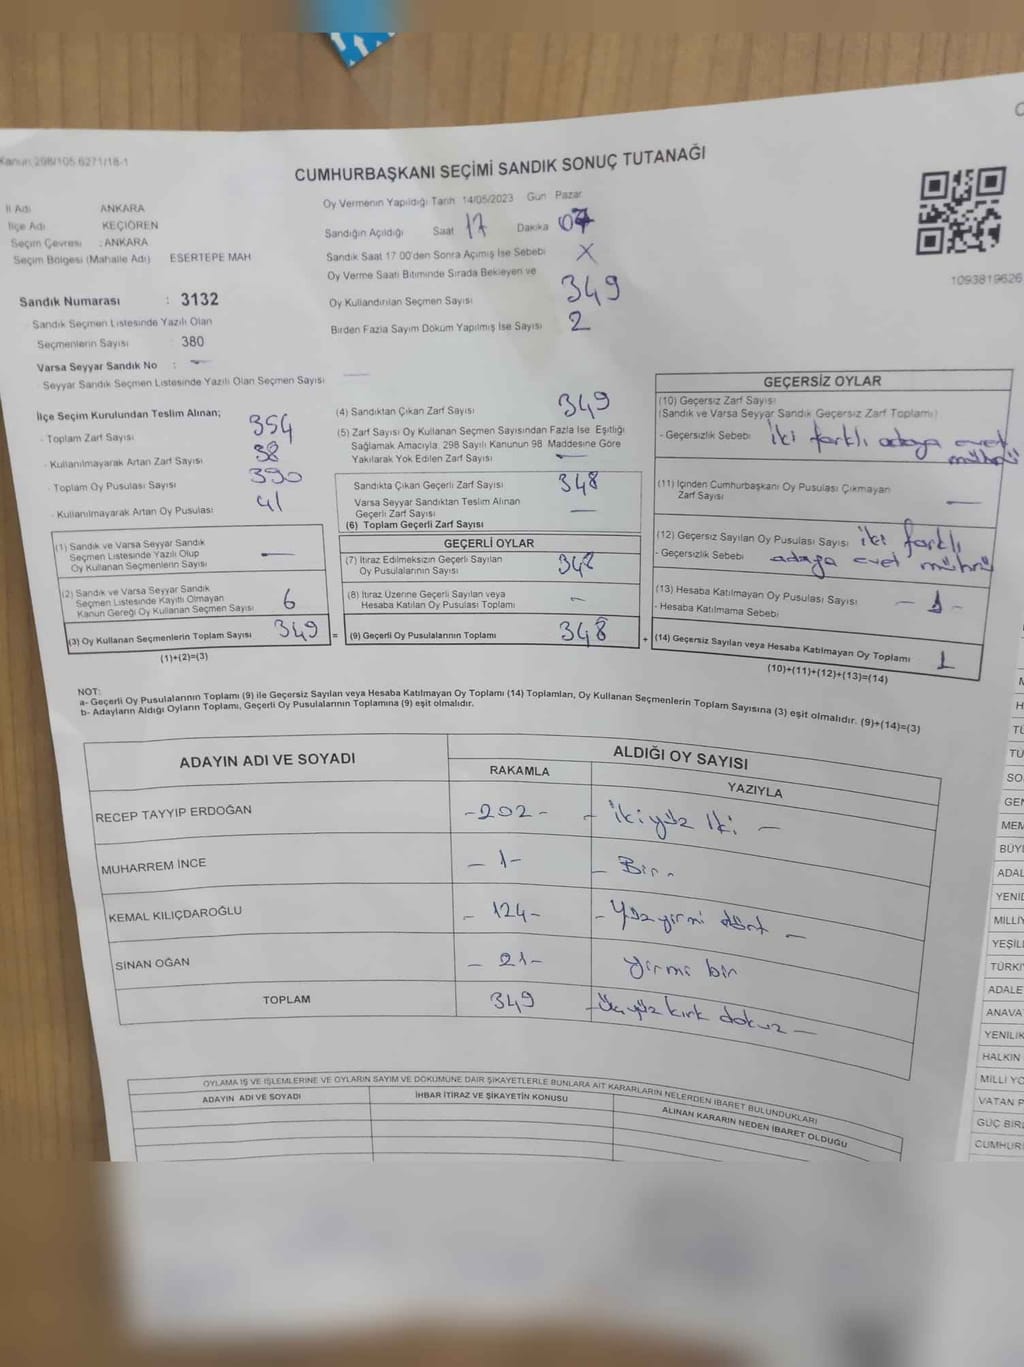 Kanun:298/105.6271/18-1
CUMHURBAŞKANI SEÇİMİ SANDIK SONUÇ TUTANAĞI
İl Adı ANKARA
İlçe Adı KEÇİÖREN
Seçim Çevresi : ANKARA
Seçim Bölgesi (Mahalle Adı) ESERTEPE MAH
Sandık Numarası : 3132
Sandık Seçmen Listesinde Yazılı Olan
Seçmenlerin Sayısı : 380
Varsa Seyyar Sandık No : —
Seyyar Sandık Seçmen Listesinde Yazılı Olan Seçmen Sayısı —
Oy Vermenin Yapıldığı Tarih 14/05/2023 Gün Pazar
Sandığın Açıldığı Saat 17 Dakika 07
Sandık Saat 17:00'den Sonra Açılmış İse Sebebi X
Oy Verme Saati Bitiminde Sırada Bekleyen ve
Oy Kullandırılan Seçmen Sayısı 349
Birden Fazla Sayım Döküm Yapılmış İse Sayısı 2
1093819626
İlçe Seçim Kurulundan Teslim Alınan;
- Toplam Zarf Sayısı 354
- Kullanılmayarak Artan Zarf Sayısı 38
- Toplam Oy Pusulası Sayısı 390
- Kullanılmayarak Artan Oy Pusulası 41
(1) Sandık ve Varsa Seyyar Sandık
Seçmen Listesinde Yazılı Olup
Oy Kullanan Seçmenlerin Sayısı —
(2) Sandık ve Varsa Seyyar Sandık
Seçmen Listesinde Kayıtlı Olmayan
Kanun Gereği Oy Kullanan Seçmen Sayısı 6
(3) Oy Kullanan Seçmenlerin Toplam Sayısı 349 =
(1)+(2)=(3)
(4) Sandıktan Çıkan Zarf Sayısı 349
(5) Zarf Sayısı Oy Kullanan Seçmen Sayısından Fazla İse Eşitliği
Sağlamak Amacıyla, 298 Sayılı Kanunun 98 Maddesine Göre
Yakılarak Yok Edilen Zarf Sayısı —
Sandıkta Çıkan Geçerli Zarf Sayısı 348
Varsa Seyyar Sandıktan Teslim Alınan
Geçerli Zarf Sayısı —
(6) Toplam Geçerli Zarf Sayısı
GEÇERLİ OYLAR
(7) İtiraz Edilmeksizin Geçerli Sayılan
Oy Pusulalarının Sayısı 348
(8) İtiraz Üzerine Geçerli Sayılan veya
Hesaba Katılan Oy Pusulası Toplamı -
(9) Geçerli Oy Pusulalarının Toplamı 348 +
GEÇERSİZ OYLAR
(10) Geçersiz Zarf Sayısı
(Sandık ve Varsa Seyyar Sandık Geçersiz Zarf Toplamı)
- Geçersizlik Sebebi İki farklı adaya evet mührü
(11) İçinden Cumhurbaşkanı Oy Pusulası Çıkmayan
Zarf Sayısı —
(12) Geçersiz Sayılan Oy Pusulası Sayısı İki farklı
- Geçersizlik Sebebi adaya evet mührü
(13) Hesaba Katılmayan Oy Pusulası Sayısı - 1 -
- Hesaba Katılmama Sebebi
(14) Geçersiz Sayılan veya Hesaba Katılmayan Oy Toplamı 1
(10)+(11)+(12)+(13)=(14)
NOT:
a- Geçerli Oy Pusulalarının Toplamı (9) ile Geçersiz Sayılan veya Hesaba Katılmayan Oy Toplamı (14) Toplamları, Oy Kullanan Seçmenlerin Toplam Sayısına (3) eşit olmalıdır. (9)+(14)=(3)
b- Adayların Aldığı Oyların Toplamı, Geçerli Oy Pusulalarının Toplamına (9) eşit olmalıdır.
ADAYIN ADI VE SOYADI ALDIĞI OY SAYISI
RAKAMLA YAZIYLA
RECEP TAYYİP ERDOĞAN -202- - İkiyüz İki -
MUHARREM İNCE -1- - Bir -
KEMAL KILIÇDAROĞLU - 124 - - Yüzyirmi dört -
SİNAN OĞAN - 21 - yirmi bir
TOPLAM 349 - Üçyüz kırk dokuz -
OYLAMA İŞ VE İŞLEMLERİNE VE OYLARIN SAYIM VE DÖKÜMÜNE DAİR ŞİKAYETLERLE BUNLARA AİT KARARLARIN NELERDEN İBARET BULUNDUKLARI
ADAYIN ADI VE SOYADI İHBAR İTİRAZ VE ŞİKAYETİN KONUSU ALINAN KARARIN NEDEN İBARET OLDUĞU
M
H
TÜ
TÜ
SO
GEN
MEM
BÜYÜ
ADAL
YENİD
MİLLİY
YEŞİL
TÜRKİ
ADALE
ANAVA
YENİLİK
HALKIN
MİLLİ YO
VATAN P
GÜÇ BİRL
CUMHUR